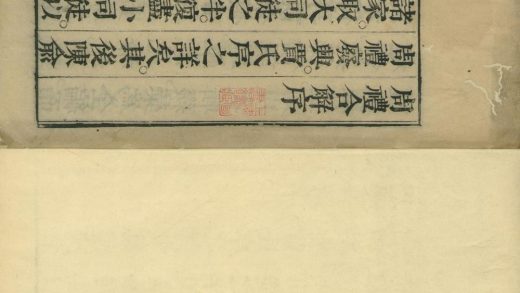 周禮合解序
周禮廢興賈氏序之詳矣其後陳俞
諸家。取大司徒之半。復盡小司徒以